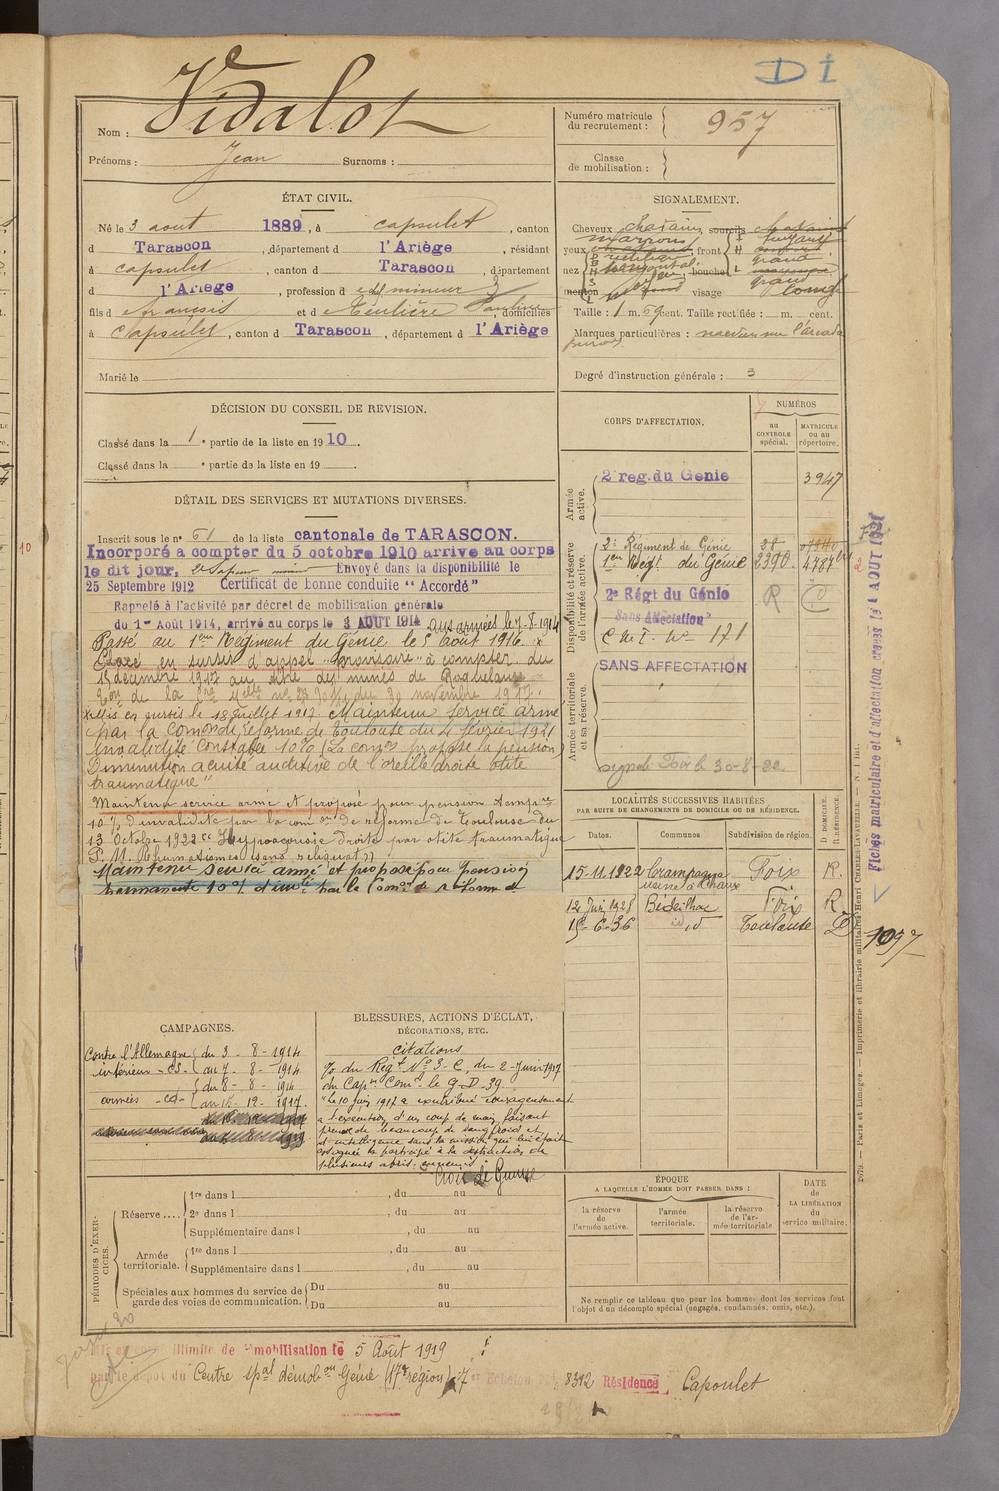 D I
Nom : Vidalot
Prénoms : Jean Surnoms :
Numéro matricule du recrutement : 957
Classe de mobilisation :
ÉTAT CIVIL.
Né le 3 aout 1889, à capoulet, canton
d Tarascon, département d l'Ariège, résidant
à capoulet, canton d Tarascon, département
d l'Ariège, profession d mineur
fils d François et d Teulière Pauline, domiciliés
à Capoulet, canton d Tarascon, département d l'Ariège
Marié le
SIGNALEMENT.
Cheveux chatain, sourcils
yeux, front
nez, bouche
menton visage long
Taille : 1 m. 69 cent. Taille rectifiée : m. cent.
Marques particulières : l'arcade
Degré d'instruction générale : 3
DÉCISION DU CONSEIL DE REVISION.
Classé dans la 1e partie de la liste en 1910.
Classé dans la e partie de la liste en 19 .
DÉTAIL DES SERVICES ET MUTATIONS DIVERSES.
Inscrit sous le n° 61 de la liste cantonale de TARASCON.
Incorporé a compter du 5 octobre 1910 arrive au corps
le dit jour, 2e Sapeur mineur Envoyé dans la disponibilité le
25 Septembre 1912 Certificat de bonne conduite "Accordé"
Rappelé à l'activité par décret de mobilisation générale
du 1er Août 1914, arrivé au corps le 3 AOUT 1914 aux armées le 7-8-1914
Passé au 1er Régiment du Génie le 5 Août 1916.
Placé en sursis d'appel "provisoire" à compter du
15 décembre 1917 au titre des mines de
du 30 novembre 1917.
Mis en sursis le 18 Juillet 1917 Maintenu service armé
par la Comon de réforme de Toulouse du 4 février 1921
Invalidité Constatée 10% (La comon propose la pension)
Diminution acuité auditive de l'oreille droite otite
traumatique"
Maintenu service armé et proposé pour pension tempre
10% d'invalidité par la comon de réforme de Toulouse du
13 Octobre 1922 "Hypoacousie droite par otite traumatique
P. M. Rhumatismes sans reliquat"
Maintenu service armé et proposé pour pension
permanente 10% d'invté par la Comon de réforme de
CORPS D'AFFECTATION.
NUMÉROS
au CONTROLE spécial.
MATRICULE ou au répertoire.
Armée active.
2e reg. du Genie 3947
Disponibilité et réserve de l'armée active.
2e Régiment de Génie 28
1er Régt du Génie 2390 4787
2e Régt du Génie R
Sans Affectation
C de I. No 171
Armée territoriale et sa réserve.
SANS AFFECTATION
Foix le 30-8-22
LOCALITÉS SUCCESSIVES HABITÉES
PAR SUITE DE CHANGEMENTS DE DOMICILE OU DE RÉSIDENCE.
Dates. Communes Subdivision de région. D. DOMICILE. R. RÉSIDENCE.
15-11.1922 Crampagna usine à Chaux Foix R.
12 Juin 1928 Bédeilhac Foix R.
15-6-36 id Toulouse D
1097
Fiches matriculaire et d'affectation créées le 1 AOUT 1921
2079. — Paris et Limoges. — Imprimerie et librairie militaires Henri CHARLES-LAVAUZELLE.
CAMPAGNES.
Contre l'Allemagne du 3 - 8 - 1914
intérieur - CS - au 7 - 8 - 1914
du 8 - 8 - 1914
armées - CD - au 18 - 12 - 1917.
BLESSURES, ACTIONS D'ÉCLAT, DÉCORATIONS, ETC.
Citations
O/ du Régt No 3-C, du 2-Juin 1917
du Capne Comdt le G-D-39
"le 10 juin 1917 a contribué courageusement
a l'exécution d'un coup de main, faisant
preuve de beaucoup de sang froid et
d'intelligence dans la mission qui lui était
assignée a participé à la destruction de
plusieurs abris ennemis"
Croix de Guerre
PÉRIODES D'EXERCICES.
Réserve.... 1re dans l , du au
2e dans l , du au
Supplémentaire dans l , du au
Armée territoriale. 1re dans l , du au
Supplémentaire dans l , du au
Spéciales aux hommes du service de garde des voies de communication. Du au
Du au
ÉPOQUE
A LAQUELLE L'HOMME DOIT PASSER DANS :
la réserve de l'armée active.
l'armée territoriale.
la réserve de l'armée territoriale
DATE de LA LIBÉRATION du service militaire.
Ne remplir ce tableau que pour les hommes dont les services font
l'objet d'un décompte spécial (engagés, condamnés, omis, etc.).
illimité de Démobilisation le 5 Août 1919
par le dépot du Centre spal démobon Génie (17e région) 7er Echelon No 8312 Résidence Capoulet